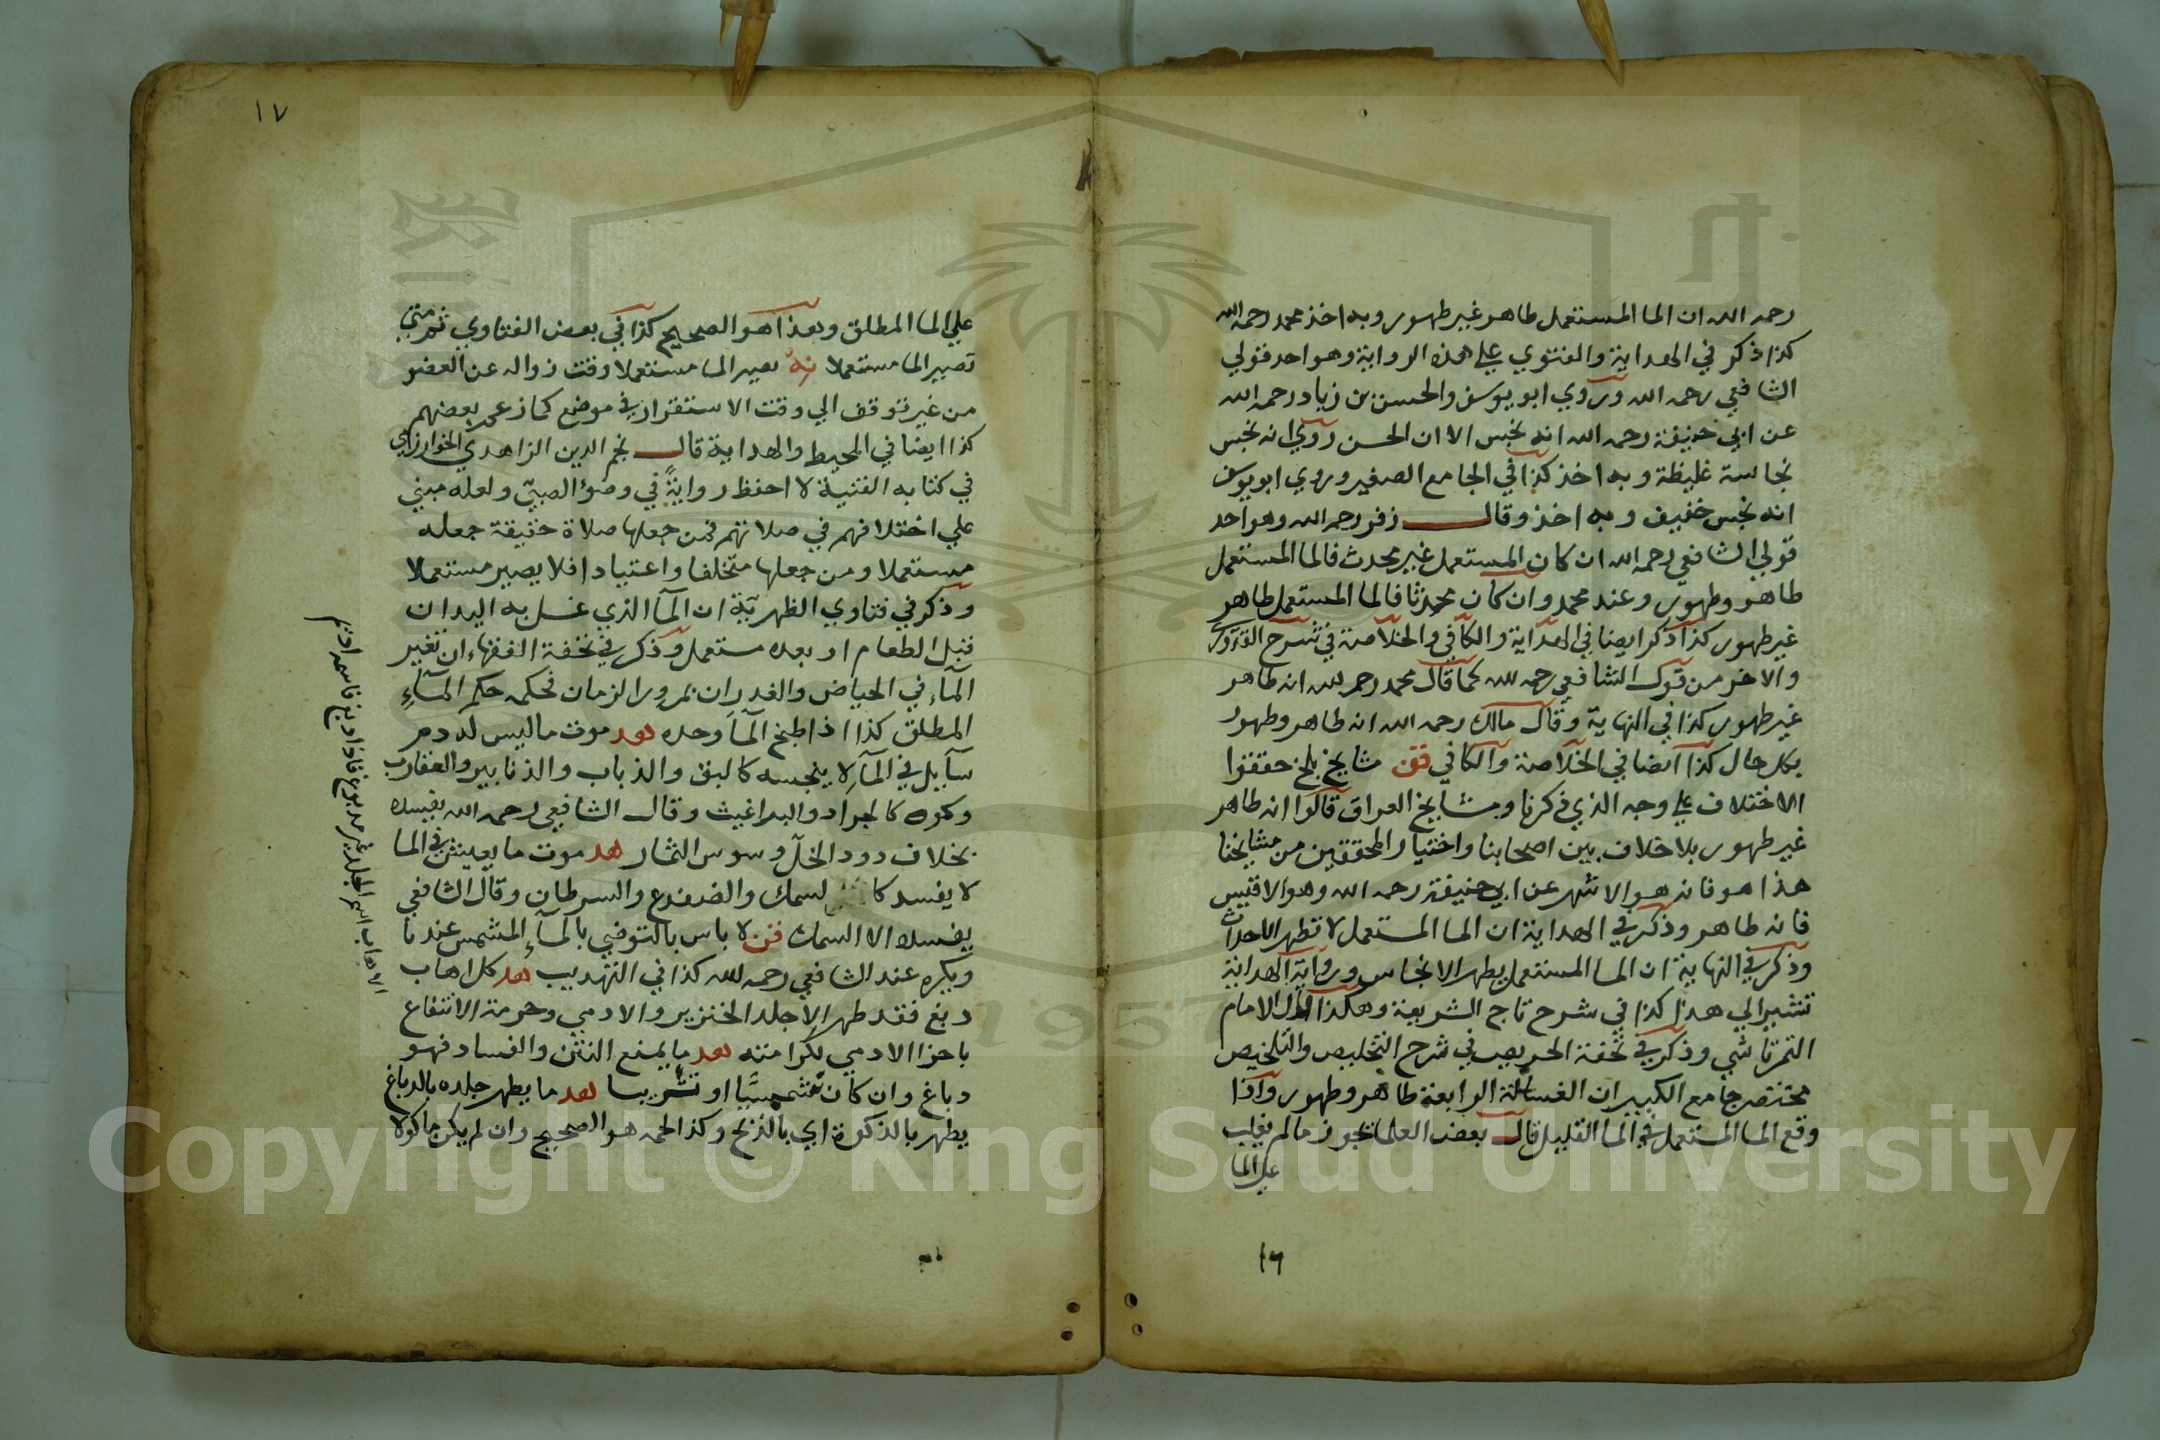 رحمه الله ان الما المستعمل طاهر غير طهور وبه اخذ محمد رحمه الله
كذا ذكر في الهداية والفتوي علي هذه الرواية وهو احد قولي
الشافعي رحمه الله وروي ابو يوسف والحسن بن زياد رحمه الله
عن ابي حنيفة رحمه الله انه نجس الا ان الحسن روي انه نجس
نجاسة غليظة وبه اخذ كذا في الجامع الصغير وروي ابو يوسف
انه نجس خفيف وبه اخذ وقال زفر رحمه الله وهو احد
قولي الشافعي رحمه الله ان كان المستعمل غير محدث فالما المستعمل
طاهر وطهور وعند محمد وان كان محدثا فالما المستعمل طاهر
غير طهور كذا ذكر ايضا في الهداية والكافي والخلاصة في شرح القدوري
والاخر من قول الشافعي رحمه الله كما قال محمد رحمه الله انه طاهر
غير طهور كذا في النهاية وقال مالك رحمه الله انه طاهر وطهور
بكل حال كذا ايضا في الخلاصة والكافي قن مشايخ بلخ حققوا
الاختلاف علي وجه الذي ذكرنا ومشايخ العراق قالوا انه طاهر
غير طهور بلا خلاف بين اصحابنا واختيار المحققين من مشايخنا
هذا هو فانه هو الاشهر عن ابي حنيفة رحمه الله وهو الاقيس
فانه طاهر وذكر في الهداية ان الما المستعمل لا تطهر الاحداث
وذكر في النهاية ان الما المستعمل يطهر الانجاس ورواية الهداية
تشير الي هذا كذا في شرح تاج الشريعة وهكذا الامام
التمرتاشي وذكر في تحفة الحريص في شرح التخليص والتلخيص
مختصر جامع الكبير ان الغسالة الرابعة طاهر وطهور واذا
وقع الما المستعمل في الما القليل قال بعض العلما يجوز ما لم يغلب
علي الما
١٦
١٧
علي الما المطلق وهذا هو الصحيح كذا في بعض الفتاوي ثم متي
تصير الما مستعملا يصير الما مستعملا وقت زواله عن العضو
من غير توقف الي وقت الاستقرار في موضع كما زعم بعضهم
كذا ايضا في المحيط والهداية قال نجم الدين الزاهدي الخوارزمي
في كتابه القنية لا احفظ رواية في وضوء الصبي ولعله مبني
علي اختلافهم في صلاتهم فمن جعلها صلاة حقيقة جعله
مستعملا ومن جعلها متخلقا واعتيادا فلا يصير مستعملا
وذكر في فتاوي الظهرية ان المآ الذي غسل به اليدان
قبل الطعام او بعده مستعمل وذكر في تحفة الفقهاء ان تغير
المآء في الحياض والغدران بمرور الزمان فحكمه حكم المآء
المطلق كذا اذا طبخ المآ وحده هد موت ما ليس له دم
سآيل في المآء لا ينجسه كالبق والذباب والذنابير والعقارب
ونحوه كالجراد والبراغيث وقال الشافعي رحمه الله يفسده
بخلاف دود الخل وسوس الثمار هد موت ما يعيش في الما
لا يفسد كالسمك والضفدع والسرطان وقال الشافعي
يفسده الا السمك قن لا باس بالتوضي بالمآء المشمس عندنا
ويكره عند الشافعي رحمه الله كذا في التهذيب هد كل اهاب
دبغ فقد طهر الا جلد الخنزير والادمي وحرمة الانتفاع
باجزا الادمي لكرامته هد ما يمنع النتن والفساد فهو
دباغ وان كان تشميسا او تتريبا هد ما يطهر جلده بالدباغ
يطهر بالذكوة اي بالذبح وكذا لحمه هو الصحيح وان لم يكن ماكولا
الاهاب اسم الجلد غير مدبوغ فاذا دبغ فاسمه اديم